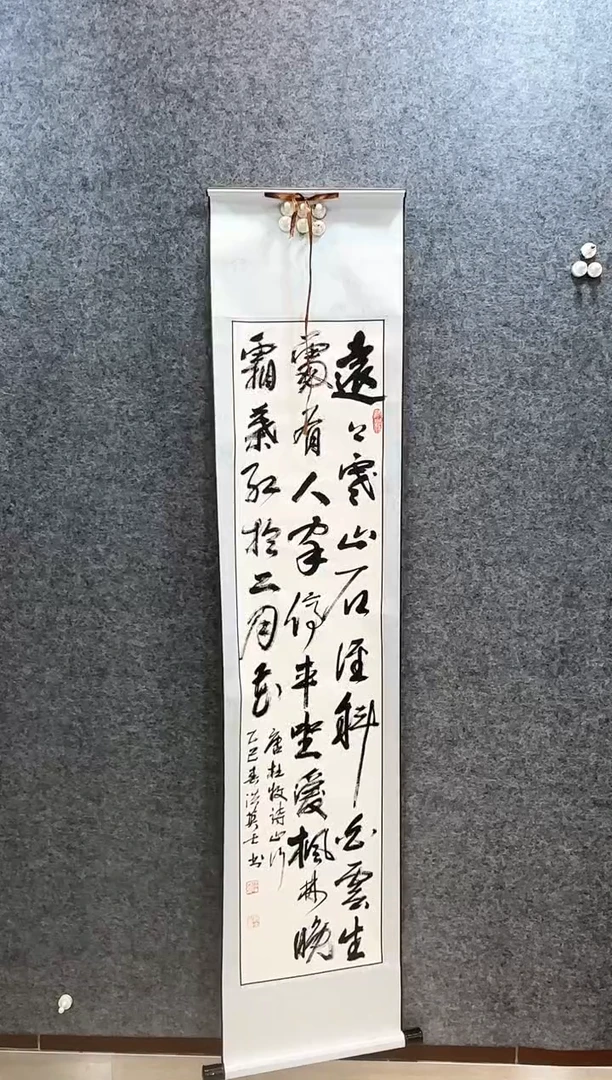 遠上寒山石徑斜白雲生
處有人家停車坐愛楓林晚
霜葉紅於二月花
唐杜牧诗山行
乙巳春洪英士书